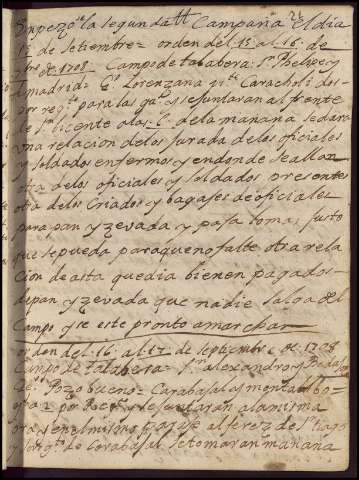 Enpezo la segunda Campaña el dia
12 de Setiembre = orden del 15 al 16 de
de 1708 Campo de talabera: Sn. Phelipe y
el madrid = Lorenzana Caracholi dos
por reg.to para las gu.as se Juntaran al frente
de Sn. Vicente a las 6 de la mañana se dara
una relacion de los Jurada de los ofiziales
y Soldados enfermos y en donde se allan
otra de los ofiziales y Soldados presentes
otra de los Criados y bagajes de ofiziales
para pan y zevada y paja lo mas justo
que se pueda para que no falte otra rela
cion de asta que dia bienen pagados
de pan y zevada que nadie Salga del
Campo y se este pronto a marchar
orden del 16 al 17 de Septiembre de 1708
Campo de talabera = Sn. alexandro y Badajos
Pozo bueno = Carabajal
por se Juntaran a la misma
ora y en el mismo paraje alferez de Santiago
de Carabajal se tomaran mañana